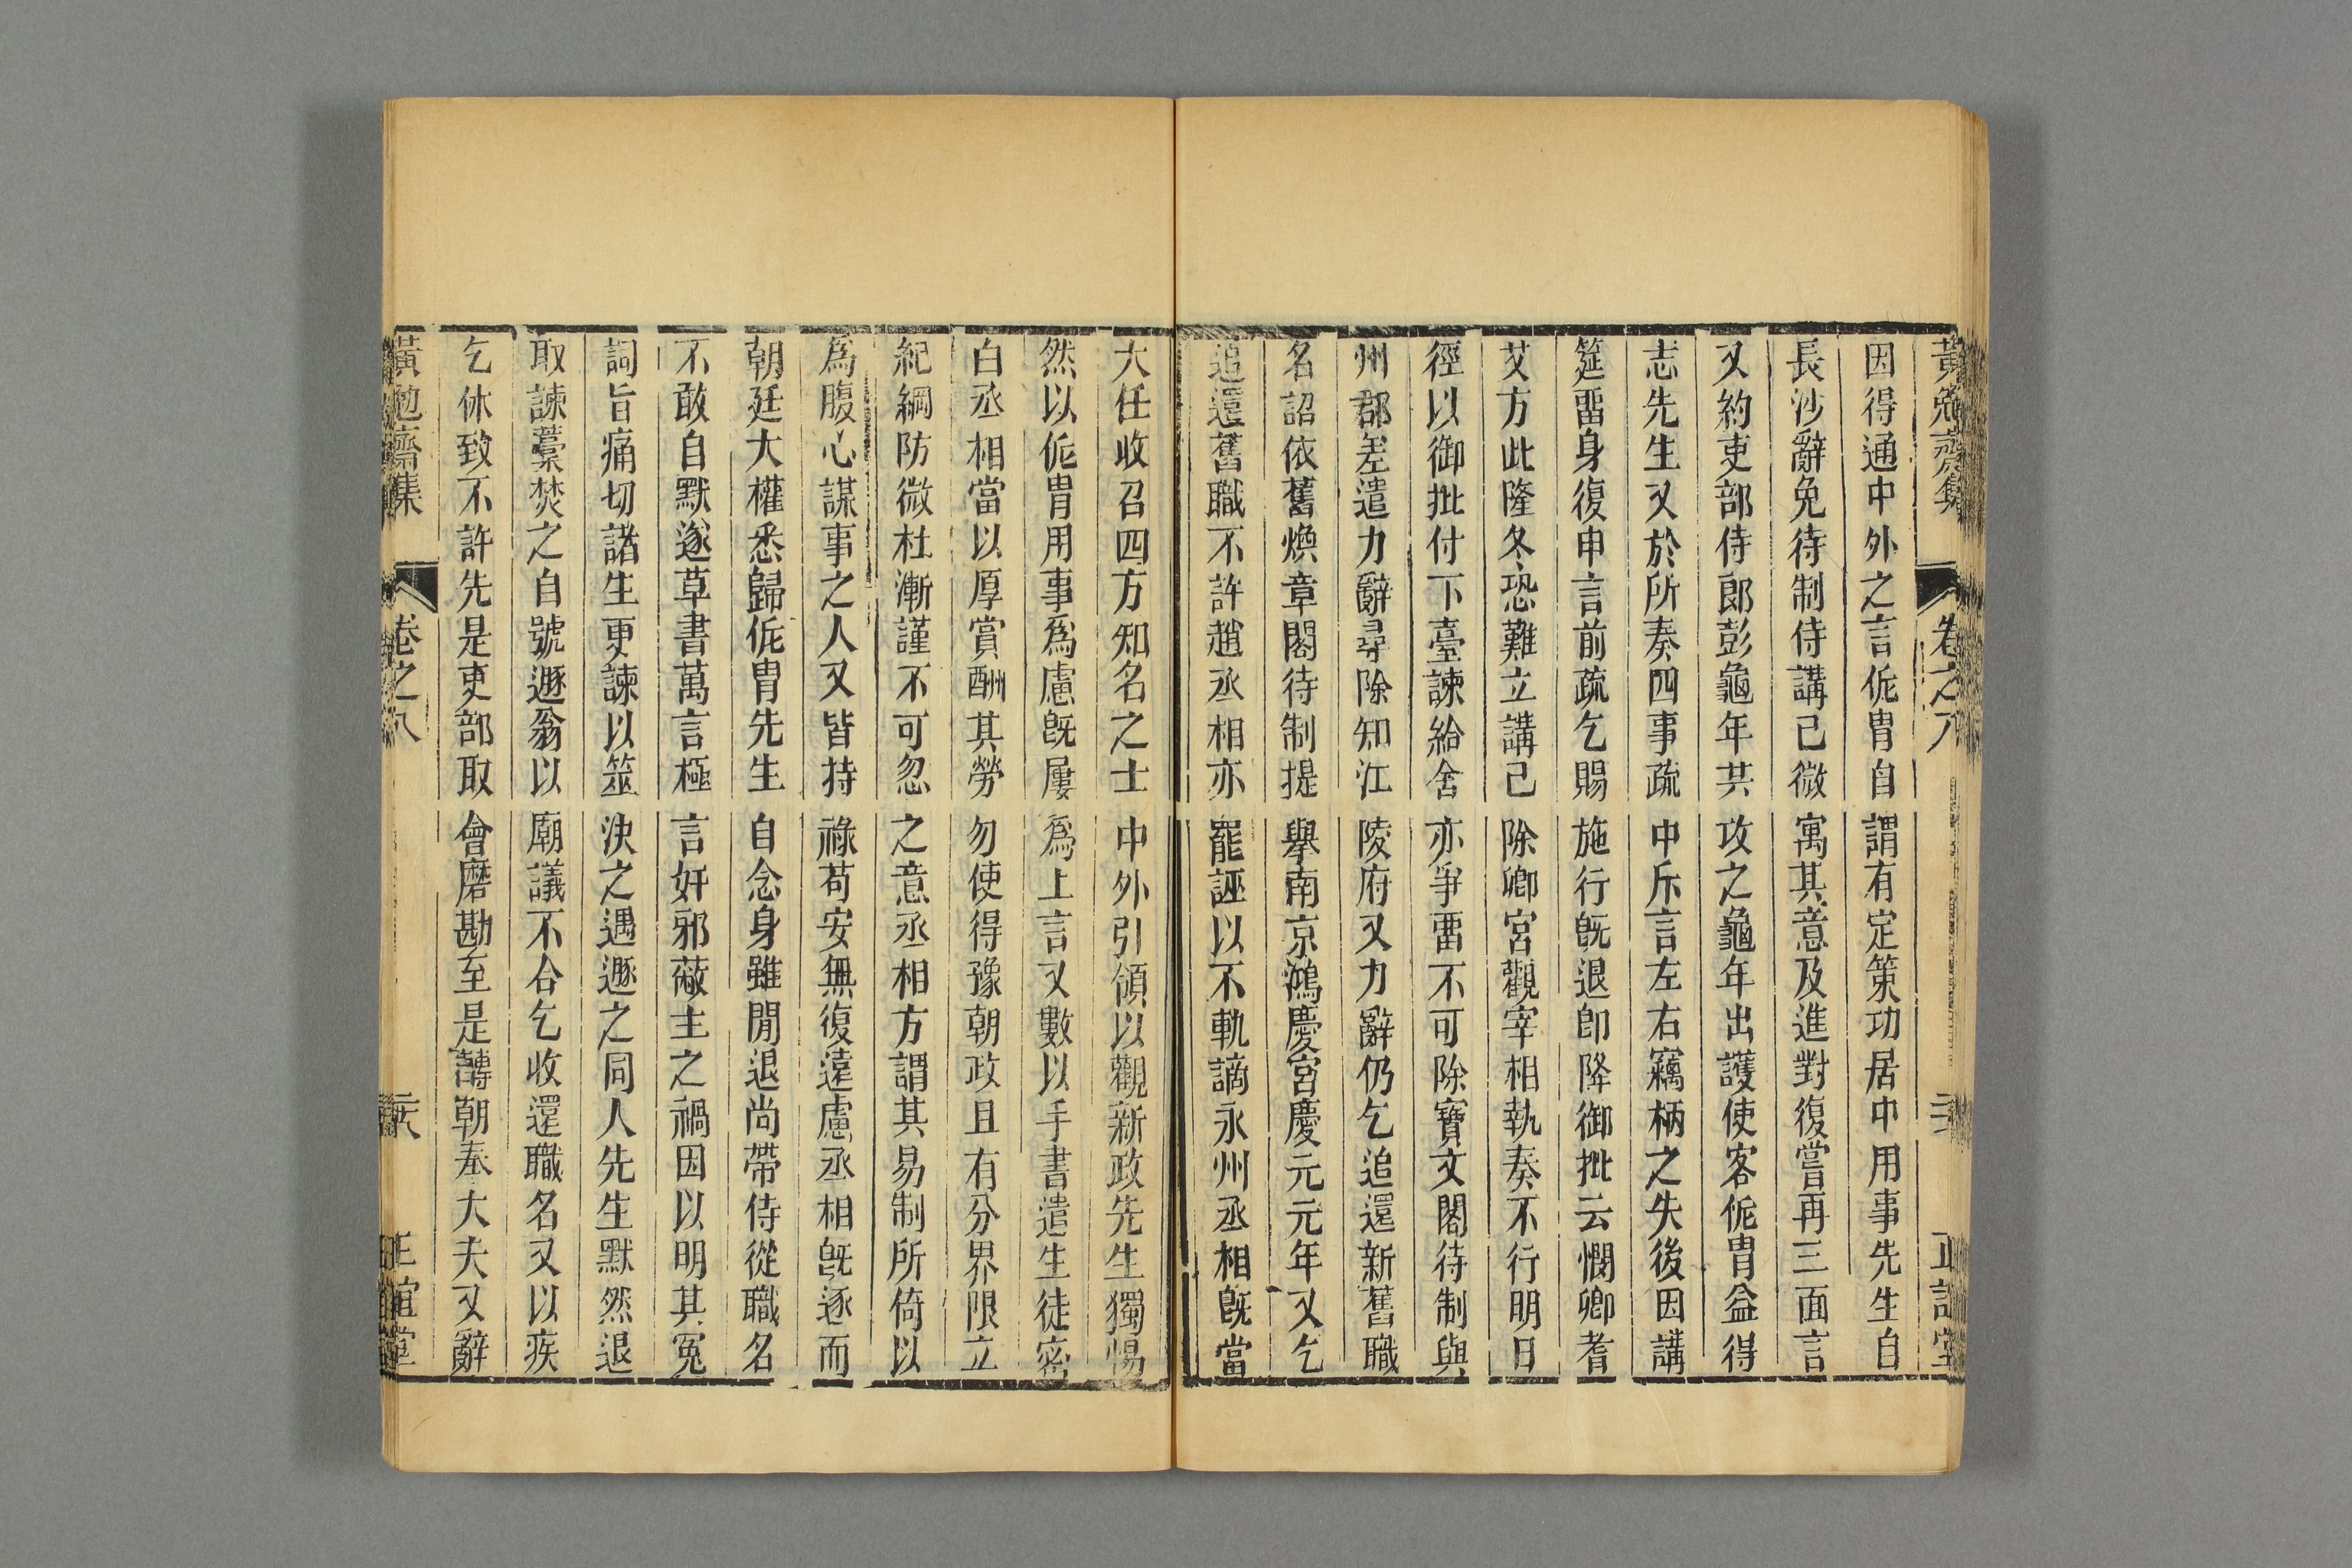 黃勉齋集 卷之八 正誼堂
因得通中外之言侂胄自謂有定策功居中用事先生自
長沙辭免待制侍講已微寓其意及進對復嘗再三面言
又約吏部侍郎彭龜年共攻之龜年出護使客侂胄益得
志先生又於所奏四事疏中斥言左右竊柄之失後因講
筵畱身復申言前疏乞賜施行旣退卽降御批云憫卿耆
艾方此隆冬恐難立講已除卿宮觀宰相執奏不行明日
徑以御批付下臺諫給舍亦爭畱不可除寶文閣待制與
州郡差遣力辭尋除知江陵府又力辭仍乞追還新舊職
名詔依舊煥章閣待制提舉南京鴻慶宮慶元元年又乞
追還舊職不許趙丞相亦罷誣以不軌謫永州丞相旣當
大任收召四方知名之士中外引領以觀新政先生獨惕
然以侂胄用事爲慮旣屢爲上言又數以手書遣生徒密
白丞相當以厚賞酬其勞勿使得豫朝政且有分界限立
紀綱防微杜漸謹不可忽之意丞相方謂其易制所倚以
爲腹心謀事之人又皆持祿苟安無復遠慮丞相旣逐而
朝廷大權悉歸侂胄先生自念身雖閒退尚帶侍從職名
不敢自默遂草書萬言極言奸邪蔽主之禍因以明其冤
詞旨痛切諸生更諫以筮決之遇遯之同人先生默然退
取諫藁焚之自號遯翁以廟議不合乞收還職名又以疾
乞休致不許先是吏部取會磨勘至是轉朝奉大夫又辭
黃勉齋集 卷之八 二十八 正誼堂